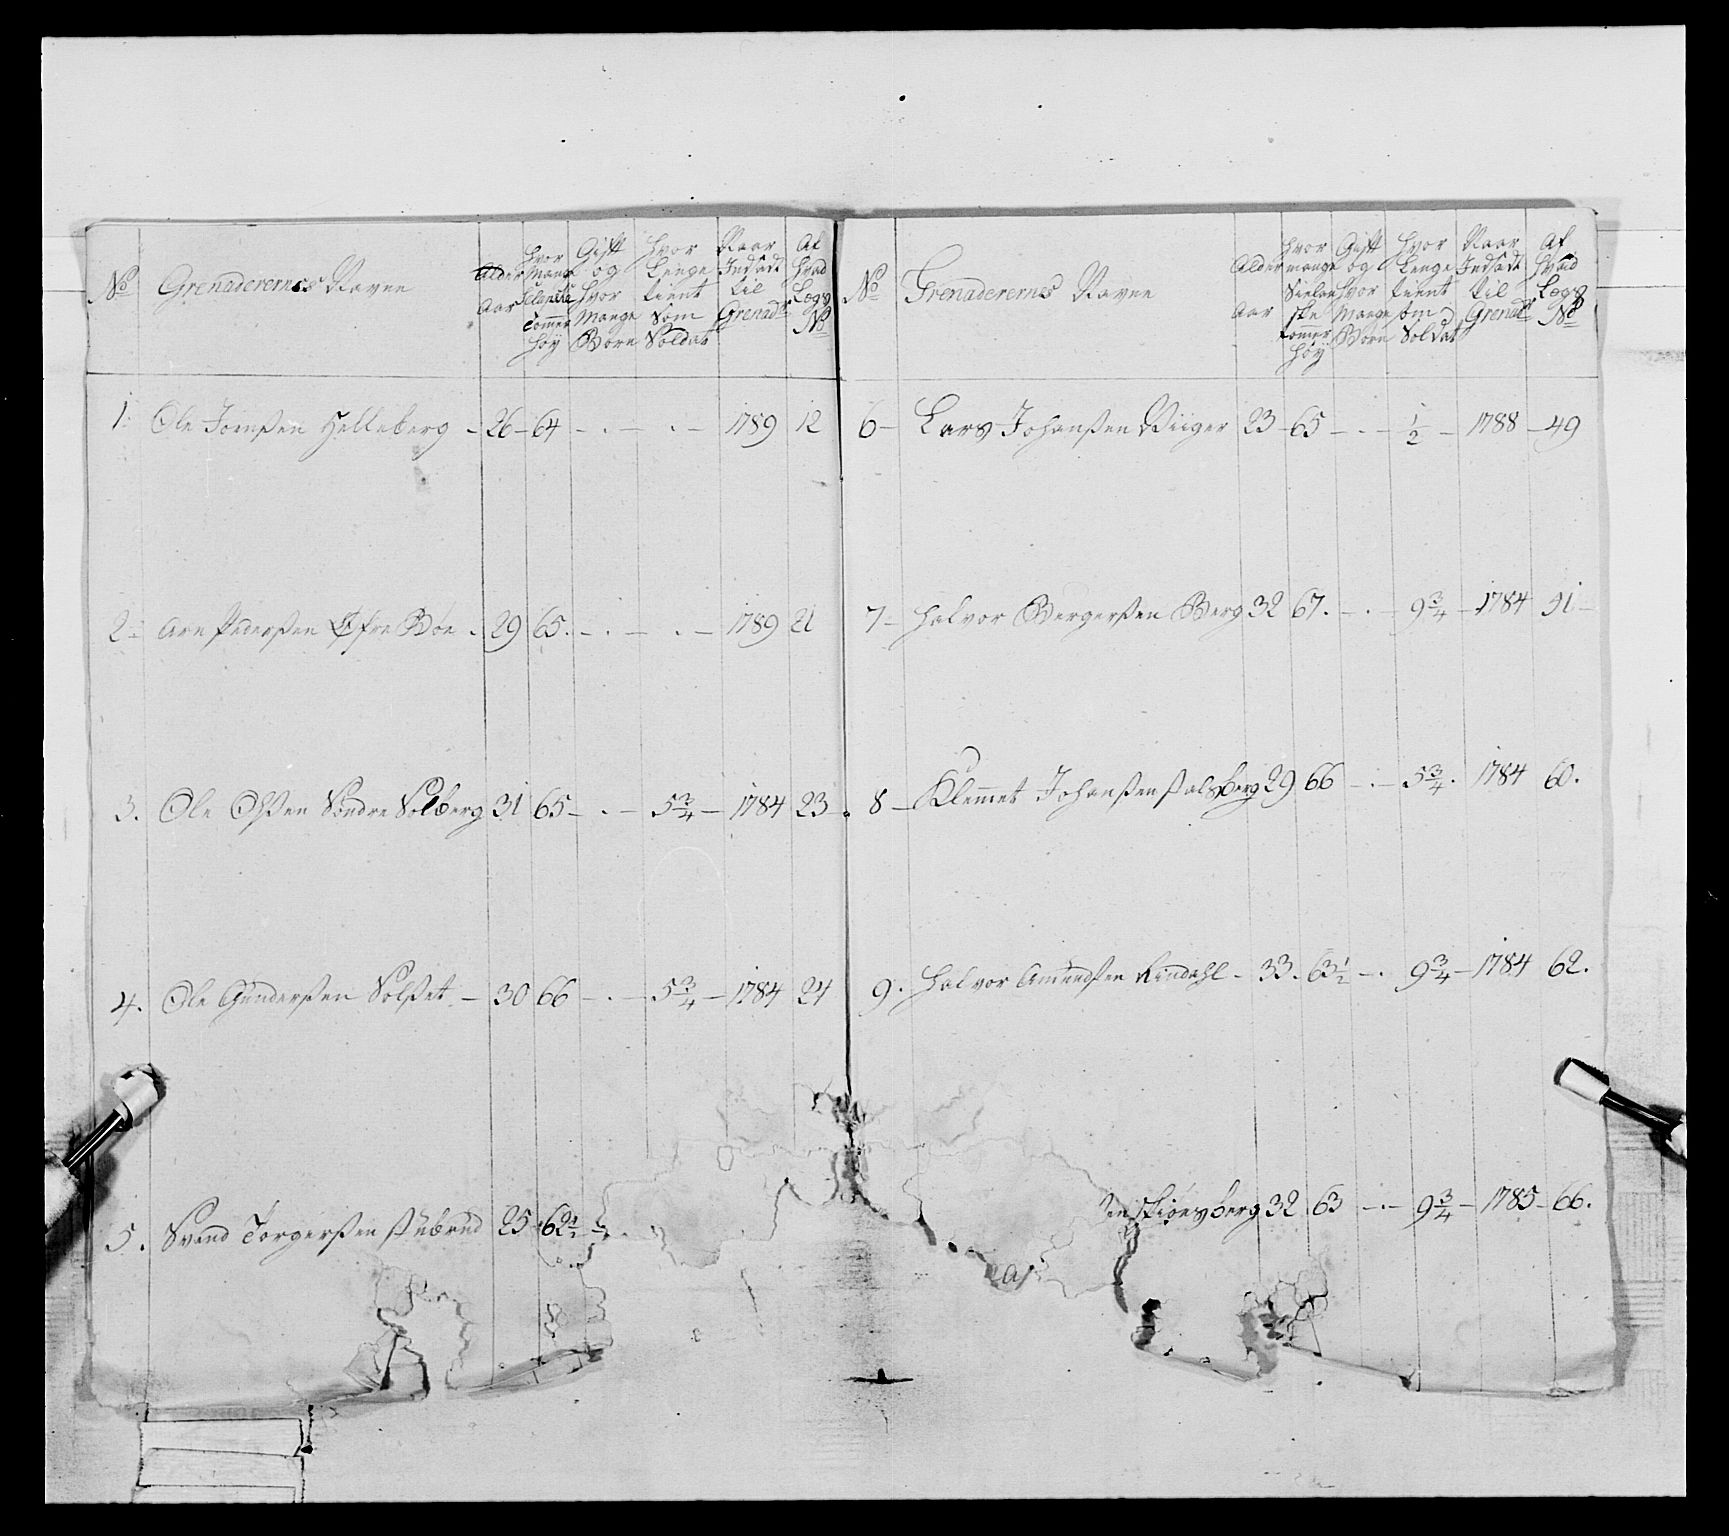 No Grenaderernes Navne Alder Aar Hvor Mange Tommer Høy Gift og Hvor Mange Børn Hvor Lenge tient Som Soldat Naar Indsadt til Grenadr Af Hvad Lægs No
1. Ole Joensen Helleberg - 26 - 64 - . - . - 1789 12
2 - Arn Pedersen Øfre Boe - 29 65. - . - . - 1789 21
3. Ole Olsen Søndre Solberg 31 65 - . - 5 3/4 - 1784 23 -
4. Ole Gundersen Solset - 30 66 - . - 5 3/4 - 1784 24
5. Svend Torgersen Stubrud 25 - 62 1/2 -
No Grenaderernes Navne Alder Aar Hvor mange Sielandske tommer Høy Gift og Hvor Mange Børn Hvor Lenge tient som Soldat Naar Indsadt til Grenadr Af Hvad Lægs No
6 - Lars Johansen Viiger 23 - 65 - . - 1/2 - 1788 - 49
7 - Halvor Bergersen Berg 32 67. - . - 9 3/4 - 1784 51 -
8 - Klemmet Johansen Falsberg 29 66 - . - 5 3/4 . 1784 60.
9. Halvor Amundsen Rindahl - 33. 63 1/2 - . 9 3/4 - 1784 62.
32 63 - . - 9 3/4 - 1785 - 66.